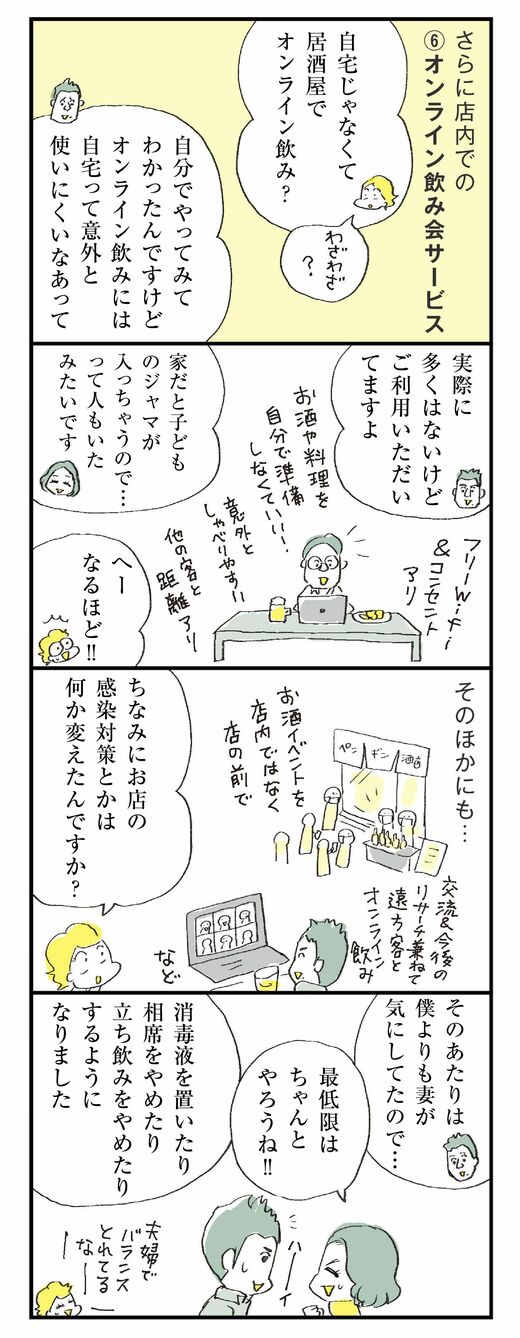 さらに店内での
⑥オンライン飲み会サービス
自宅じゃなくて
居酒屋で
オンライン飲み?
わざわざ
?
自分でやってみて
わかったんですけど
オンライン飲みには
自宅って意外と
使いにくいなあって
実際に
多くはないけど
ご利用いただい
てますよ
フリーWiFi
&コンセント
アリ
お酒や料理を
自分で準備
しなくていい!
意外と
しゃべりやすい
他の客と
距離アリ
家だと子ども
のジャマが
入っちゃうので…
って人もいた
みたいです
へー
なるほど!!
そのほかにも…
ペン
ギン
酒店
お酒イベントを
店内ではなく
店の前で
交流&今後の
リサーチ兼ねて
遠方客と
オンライン
飲み
など
ちなみにお店の
感染対策とかは
何か変えたんですか?
そのあたりは
僕よりも妻が
気にしてたので…
最低限は
ちゃんと
やろうね!!
ハーイ
消毒液を置いたり
相席をやめたり
立ち飲みをやめたり
するように
なりました
夫婦で
バランス
とれてる
なー